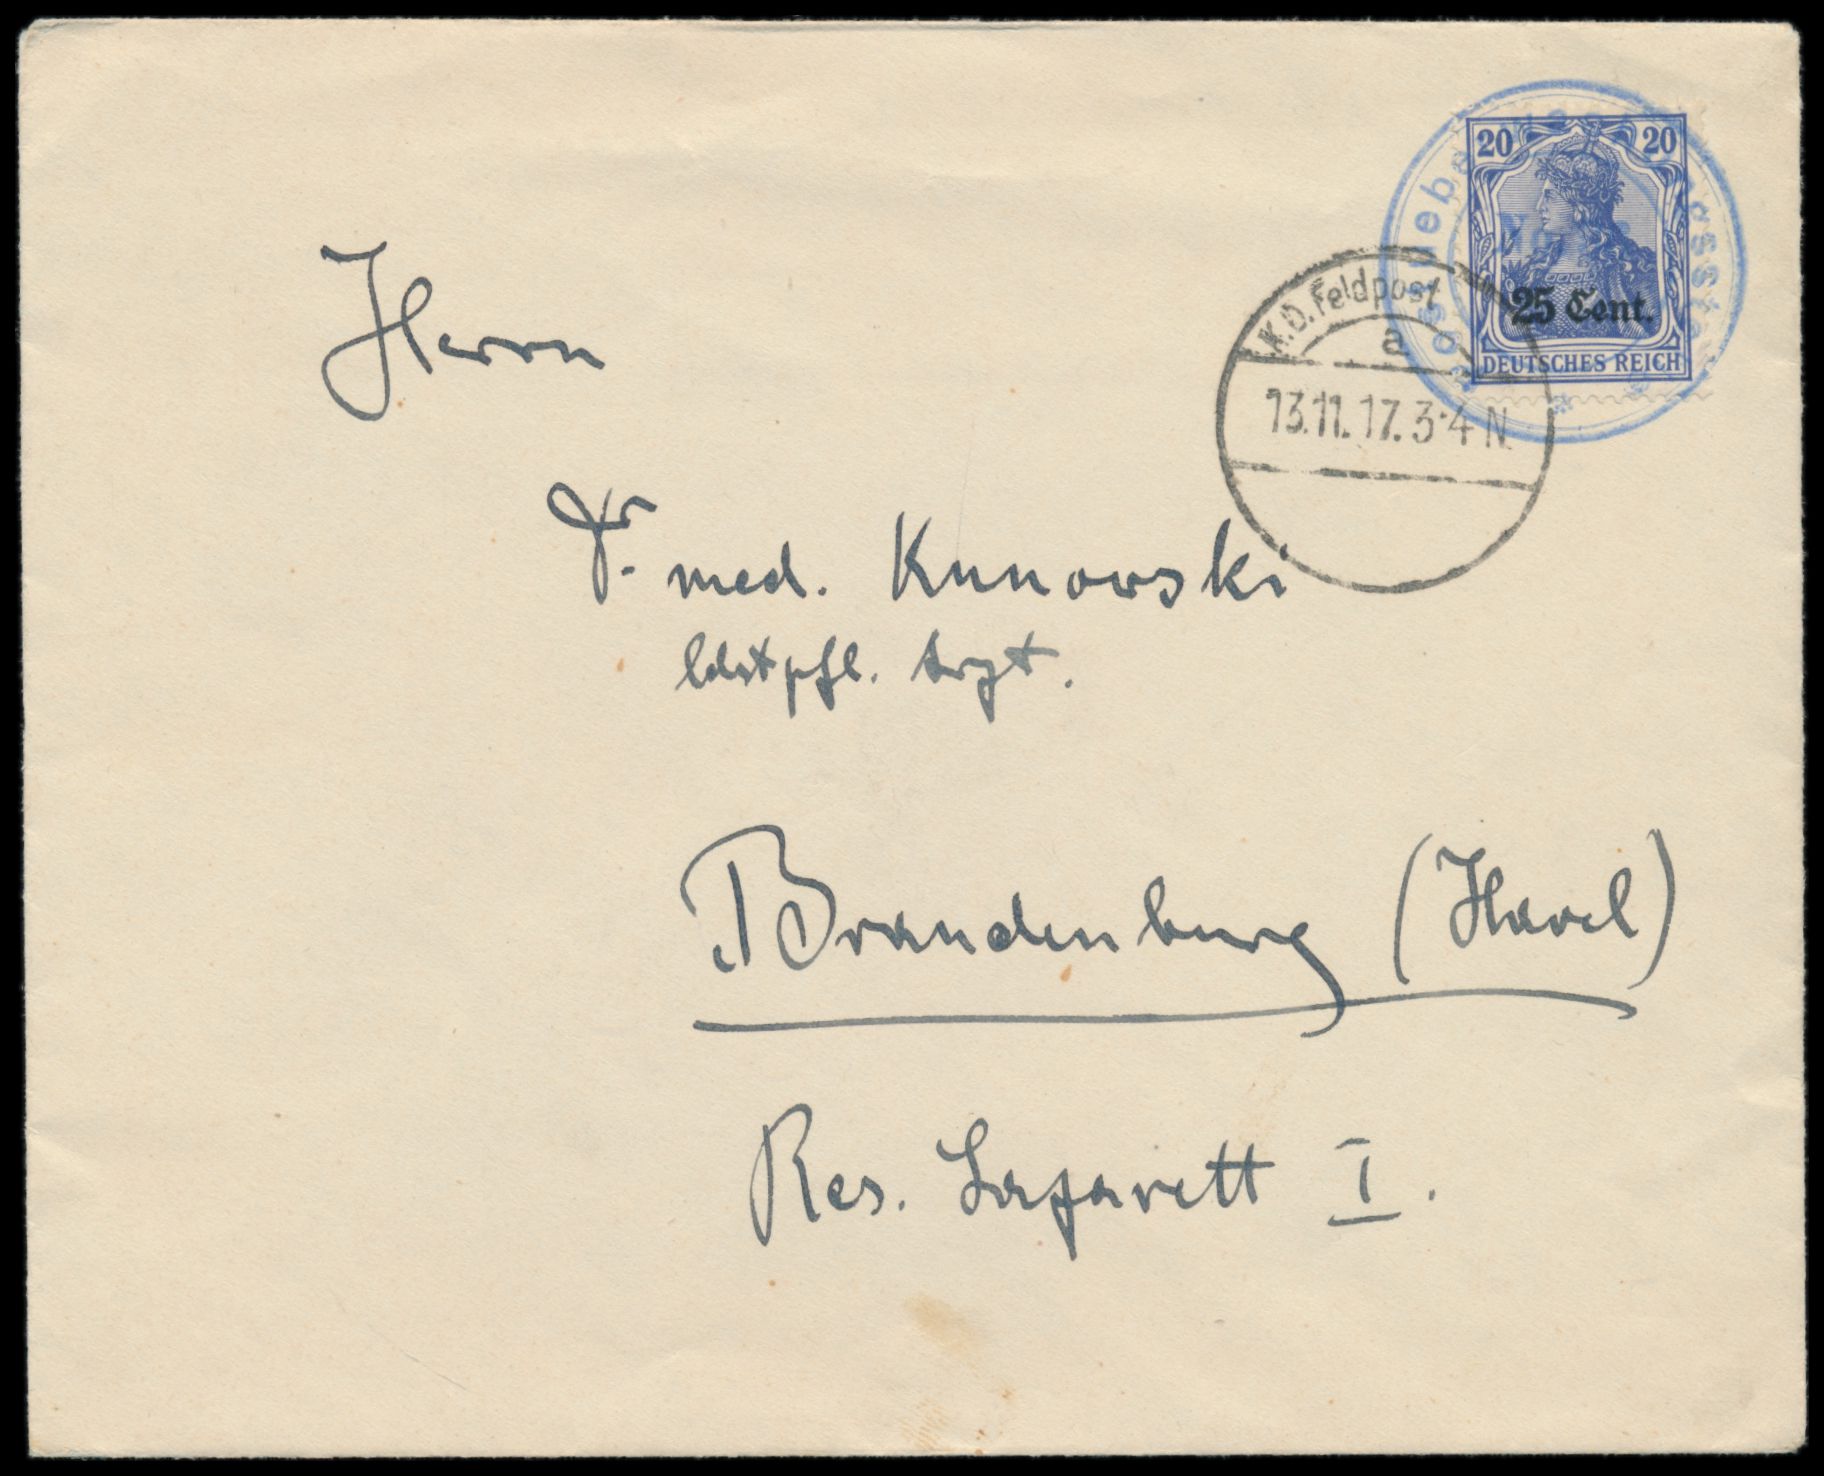 20 20
25 Cent.
DEUTSCHES REICH
K.D. Feldpost
a
13.11.17. 3-4 N
Herrn
Dr. med. Kunowski
ldstpfl. Arzt.
Brandenburg (Havel)
Res. Lazarett I.